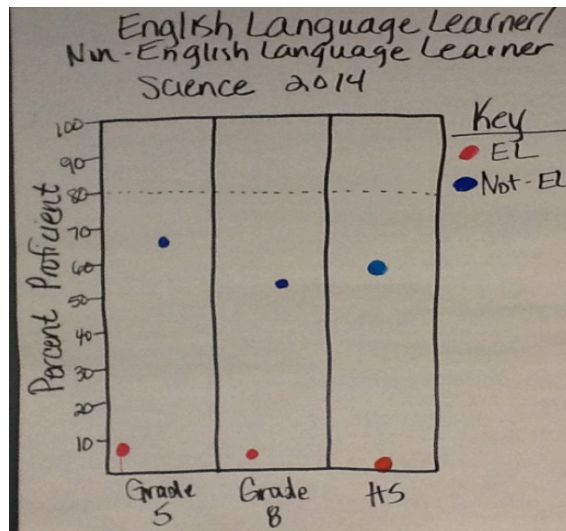 English Language Learner/
Non-English Language Learner
Science 2014
Key
EL
Not-EL
Percent Proficient
100
90
80
70
60
50
40
30
20
10
Grade
5
Grade
8
HS